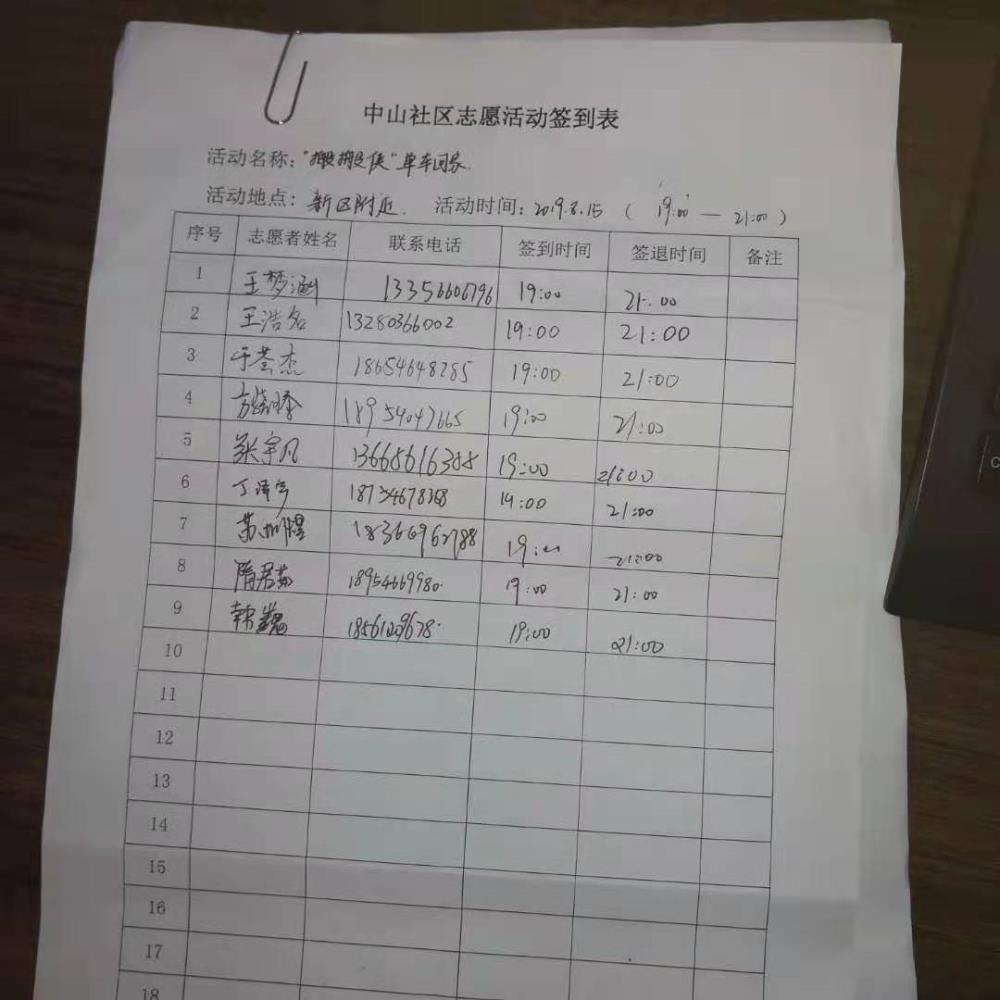 中山社区志愿活动签到表
活动名称："搬搬侠"单车回家.
活动地点：新区附近. 活动时间：2019.8.15 ( 19:00 — 21:00 )
序号 志愿者姓名 联系电话 签到时间 签退时间 备注
1 王梦涵 13356606796 19:00 21:00
2 王浩名 13280366002 19:00 21:00
3 于荟杰 18654648285 19:00 21:00
4 18954047665 19:00 21:00
5 张宇凡 13668616388 19:00 21:00
6 丁泽宇 19:00 21:00
7 18366962788 19:00 21:00
8 隋君茹 18954669980. 19:00 21:00
9 韩巍 19:00 21:00
10
11
12
13
14
15
16
17
18